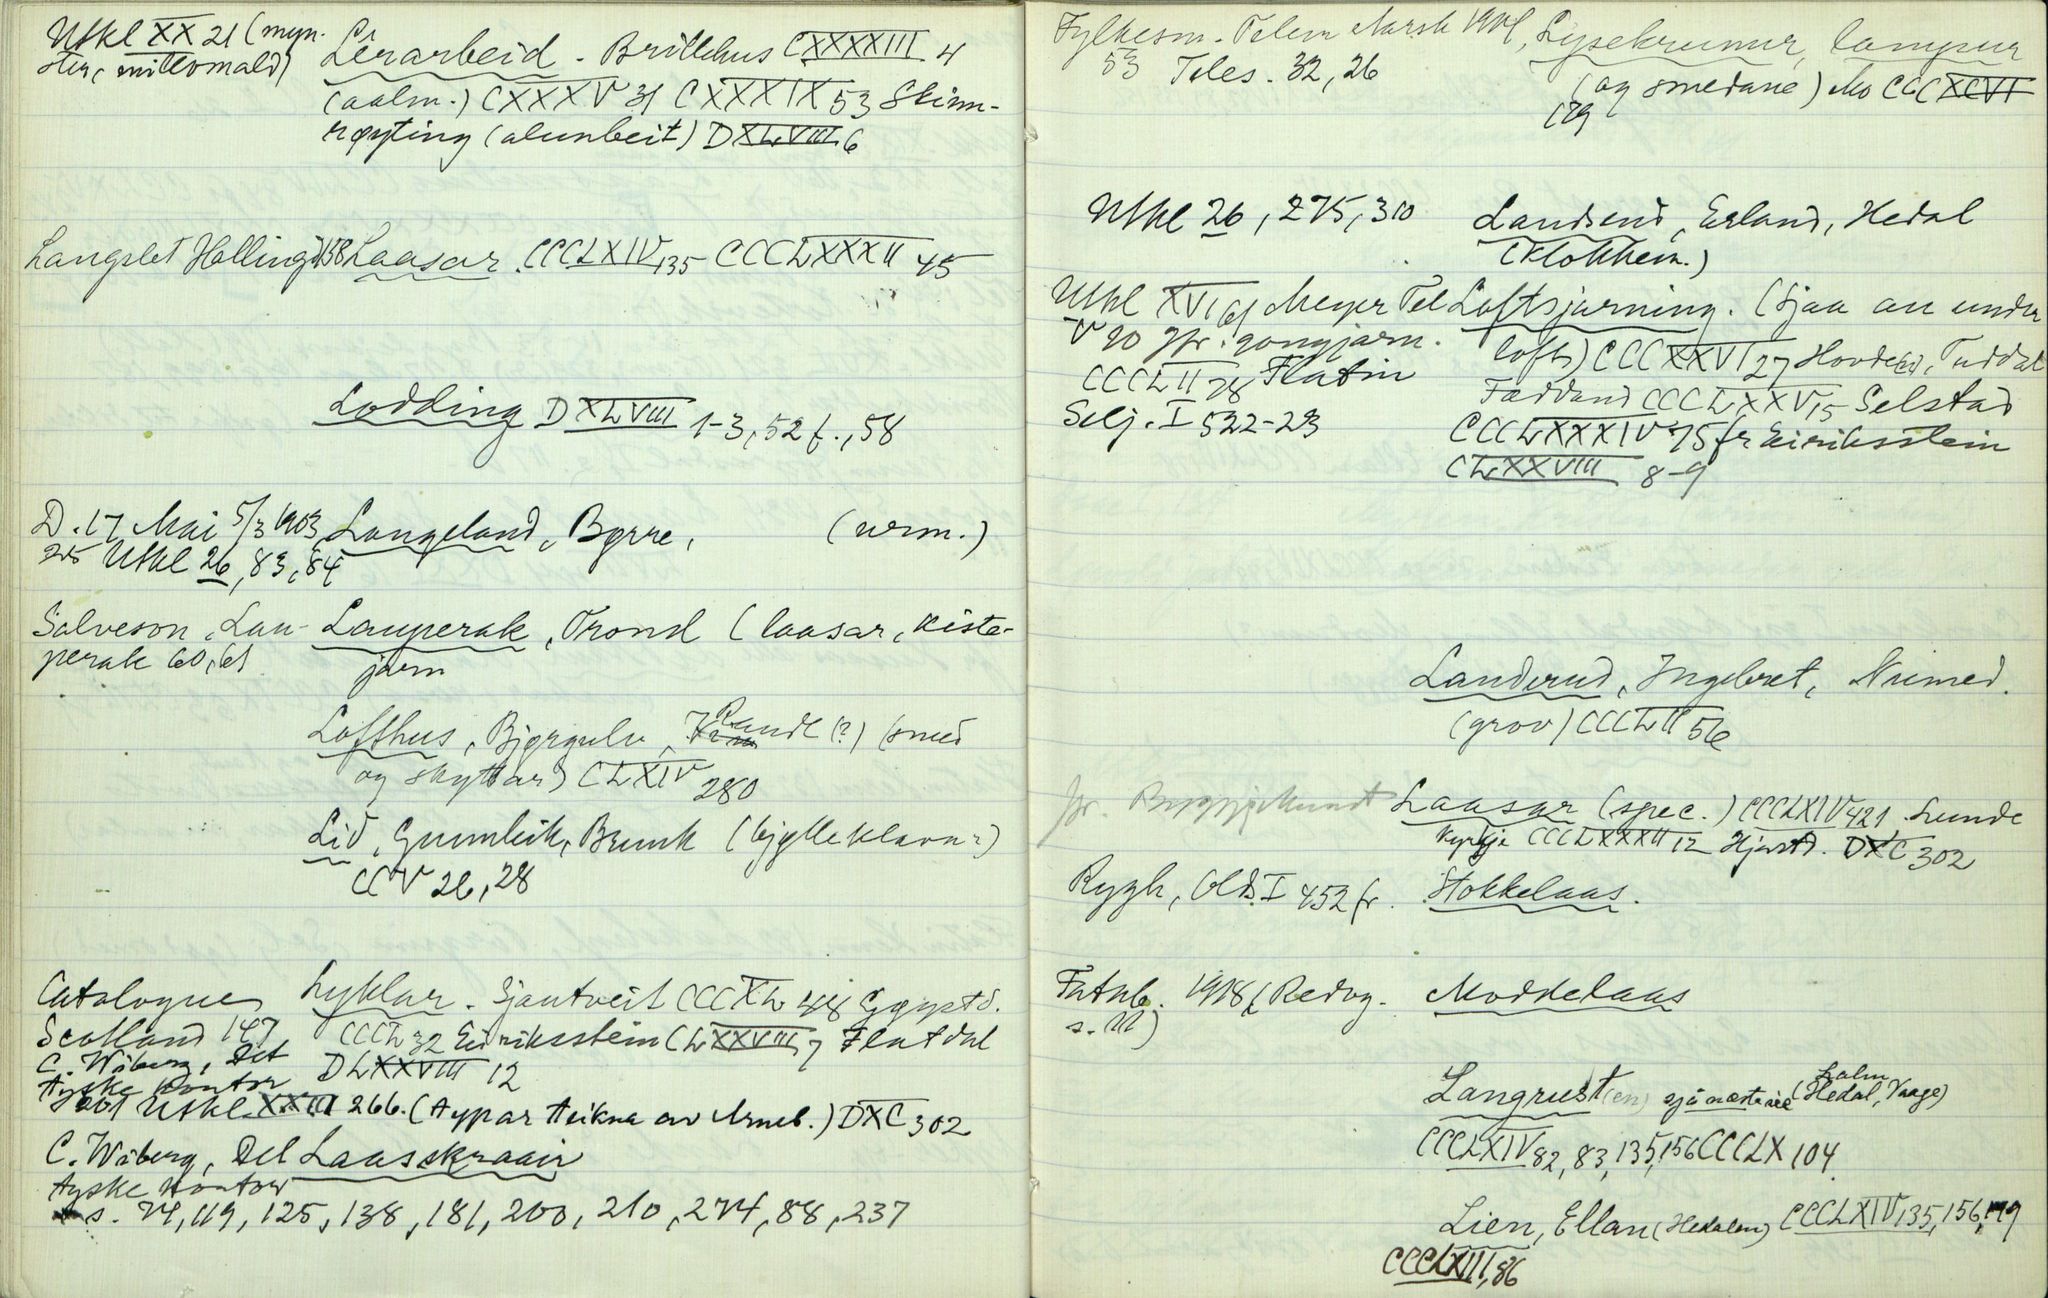 Utkl XX 21 (myn-
ster, mittvmald)
Lerarbeid. Brillehus CXXXXIII 4
(aalm.) CXXXV 31 CXXXIX 53 Skinn-
røyting (alunbeit) DXLVIII 6
Langslet Hallingd 158 Laasar. CCCLXIV 135 CCCLXXXII 45
Lodding DXLVIII 1-3, 52 f., 58
D. 17 Mai 5/3 1903 Langeland, Børre, (urm.)
Utkl 26, 83, 84
Salveson, Lau-
perak 60, 61
Lauperak, Trond (laasar, kiste-
jarn
Lofthus, Bjørgulv, Rundl (?) (smed
og skyttar) CLXIV 280
Lid, Gunnleik, Brunk (bjølleklavar)
CCV 26, 28
Catalogue
Scotland 147
C. Wiberg, Det
tyske kontor
Lyklar. Sjautveit CCCXL 48 Egyptd.
CCCL 32 Eiriksstein CLXXVIII 7 Flatdal
DLXXVIII 12
Utkl XXIII 266. (typar teikna av Arneb.) DXC 302
C. Wiberg, Det Laasskraair
tyske kontor
s. 74, 119, 125, 138, 181, 200, 210, 274, 88, 237
Fylkesm. Telem Aarsk 1914, Lysekrunur, lampur
53 Teles. 32, 26
(og smedane) Mo CCCXCVI
179
Utkl 26, 275, 310 Landsend, Erland, Hedal
(Klokkem.)
Utkl XVI 61 Meyer Tel Loftsjarning. (Sjaa au under
V 90 Jfr. gongjarn.
loft) CCCXXVI 27 Hovde, Tuddal
CCCLII 78 Flatin
Faddand CCCLXXV 15 Selstad
Selj. I 522-23
CCCLXXXIV 75 fr Eiriksstein
CLXXVIII 8-9
Landerud, Ingebret, Numed.
(grov) CCCLII 56
Jfr. Byggjekunst Laasar (spec.) CCCLXIV 421 Lunde
kyrkje CCCLXXXII 12 Hjartd. DXC 302
Rygh, Olds. I 452 fr. Stokkelaas.
Fatnb. 1918 (Redog.
s. 11)
Moddelaas
Langrust(en) sjå næste side (Hedal, Vaage)
Lalm
CCCLXIV 82, 83, 135, 156 CCCLX 104
Lien, Ellan (Hedalen) CCCLXIV 135, 156, 179
CCCLXIII, 86